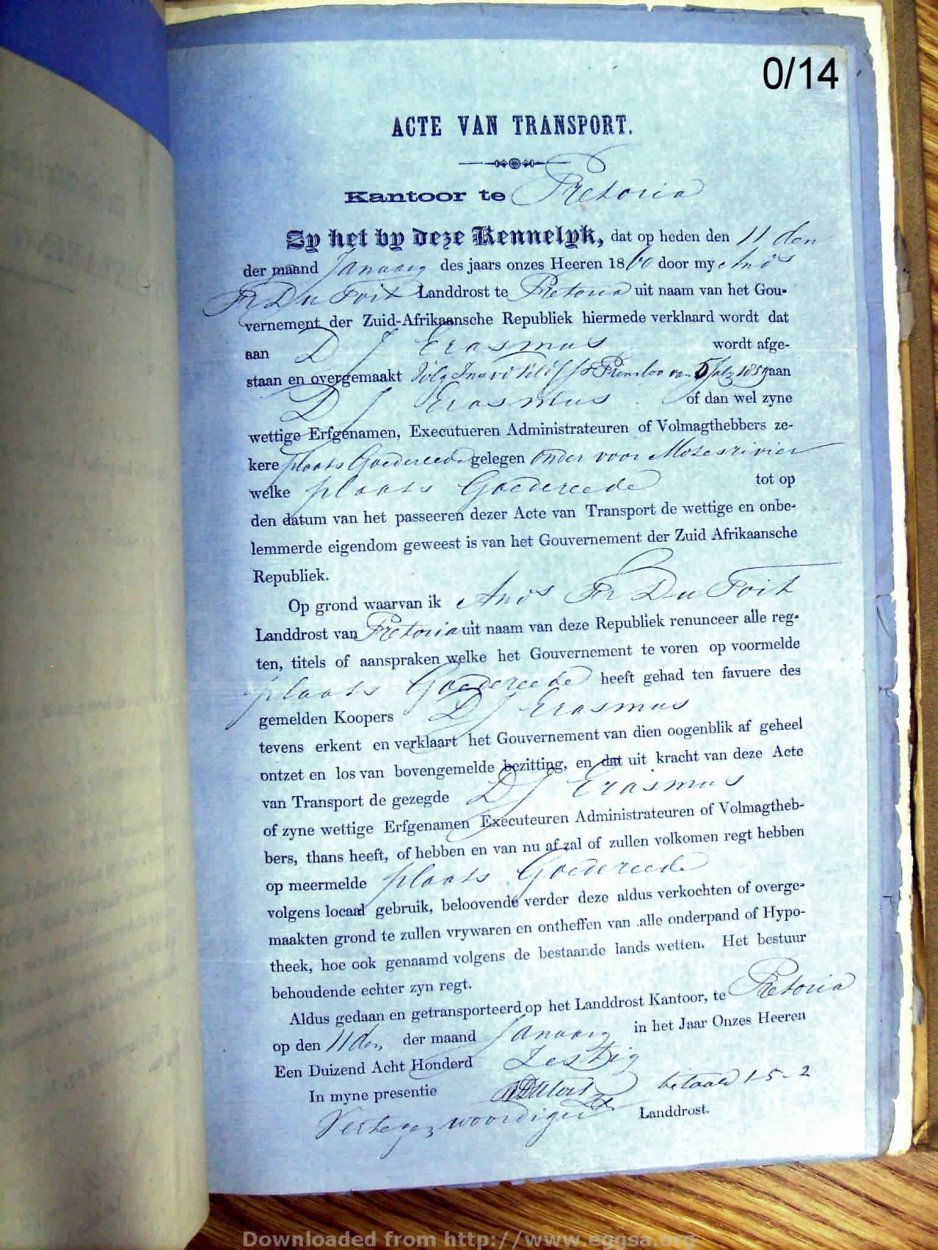 0/14
ACTE VAN TRANSPORT.
Kantoor te Pretoria
Zy het by deze Kennelyk, dat op heden den 11 den
der maand January des jaars onzes Heeren 1860 door my Ands
Fr Du Toit Landdrost te Pretoria uit naam van het Gou-
vernement der Zuid-Afrikaansche Republiek hiermede verklaard wordt dat
aan D J Erasmus wordt afge-
staan en overgemaakt 1859 aan
D J Erasmus of dan wel zyne
wettige Erfgenamen, Executueren Administrateuren of Volmagthebbers ze-
kere plaats Goedereede gelegen onder voor Mosesrivier
welke plaats Goedereede tot op
den datum van het passeeren dezer Acte van Transport de wettige en onbe-
lemmerde eigendom geweest is van het Gouvernement der Zuid Afrikaansche
Republiek.
Op grond waarvan ik Ands Fr Du Toit
Landdrost van Pretoria uit naam van deze Republiek renunceer alle reg-
ten, titels of aanspraken welke het Gouvernement te voren op voormelde
plaats Goedereede heeft gehad ten favuere des
gemelden Koopers D J Erasmus
tevens erkent en verklaart het Gouvernement van dien oogenblik af geheel
ontzet en los van bovengemelde bezitting, en dat uit kracht van deze Acte
van Transport de gezegde D J Erasmus
of zyne wettige Erfgenamen Executeuren Administrateuren of Volmagtheb-
bers, thans heeft, of hebben en van nu af zal of zullen volkomen regt hebben
op meermelde plaats Goedereede
volgens locaal gebruik, beloovende verder deze aldus verkochten of overge-
maakten grond te zullen vrywaren en ontheffen van alle onderpand of Hypo-
theek, hoe ook genaamd volgens de bestaande lands wetten. Het bestuur
behoudende echter zyn regt.
Aldus gedaan en getransporteerd op het Landdrost Kantoor, te Pretoria
op den 11 den der maand January in het Jaar Onzes Heeren
Een Duizend Acht Honderd Zestig
In myne presentie betaald 1-5-2
Landdrost.
Downloaded from http://www.eggsa.org